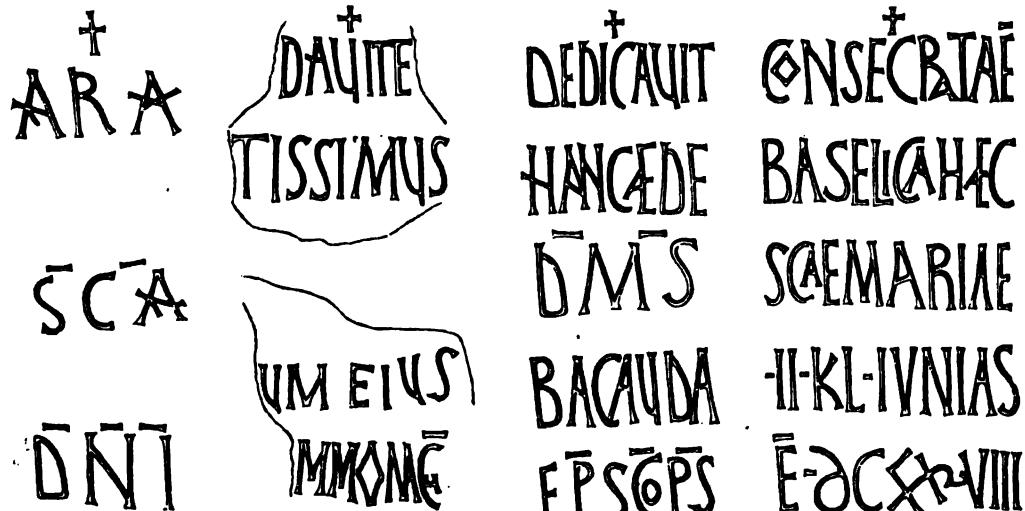 ✝
ARA
S̄CĀ
D̄N̄Ī
✝
DAUITE
TISSIMUS
UM EIUS
MMONC̄
✝
DEDICAUIT
HANCÆDE
D̄M̄S
BACAUDA
EP̄SC̄OP̄S
✝
CONSECRATAĒ
BASELICAHÆC
SCAEMARIAE
-II-KL-IVNIAS